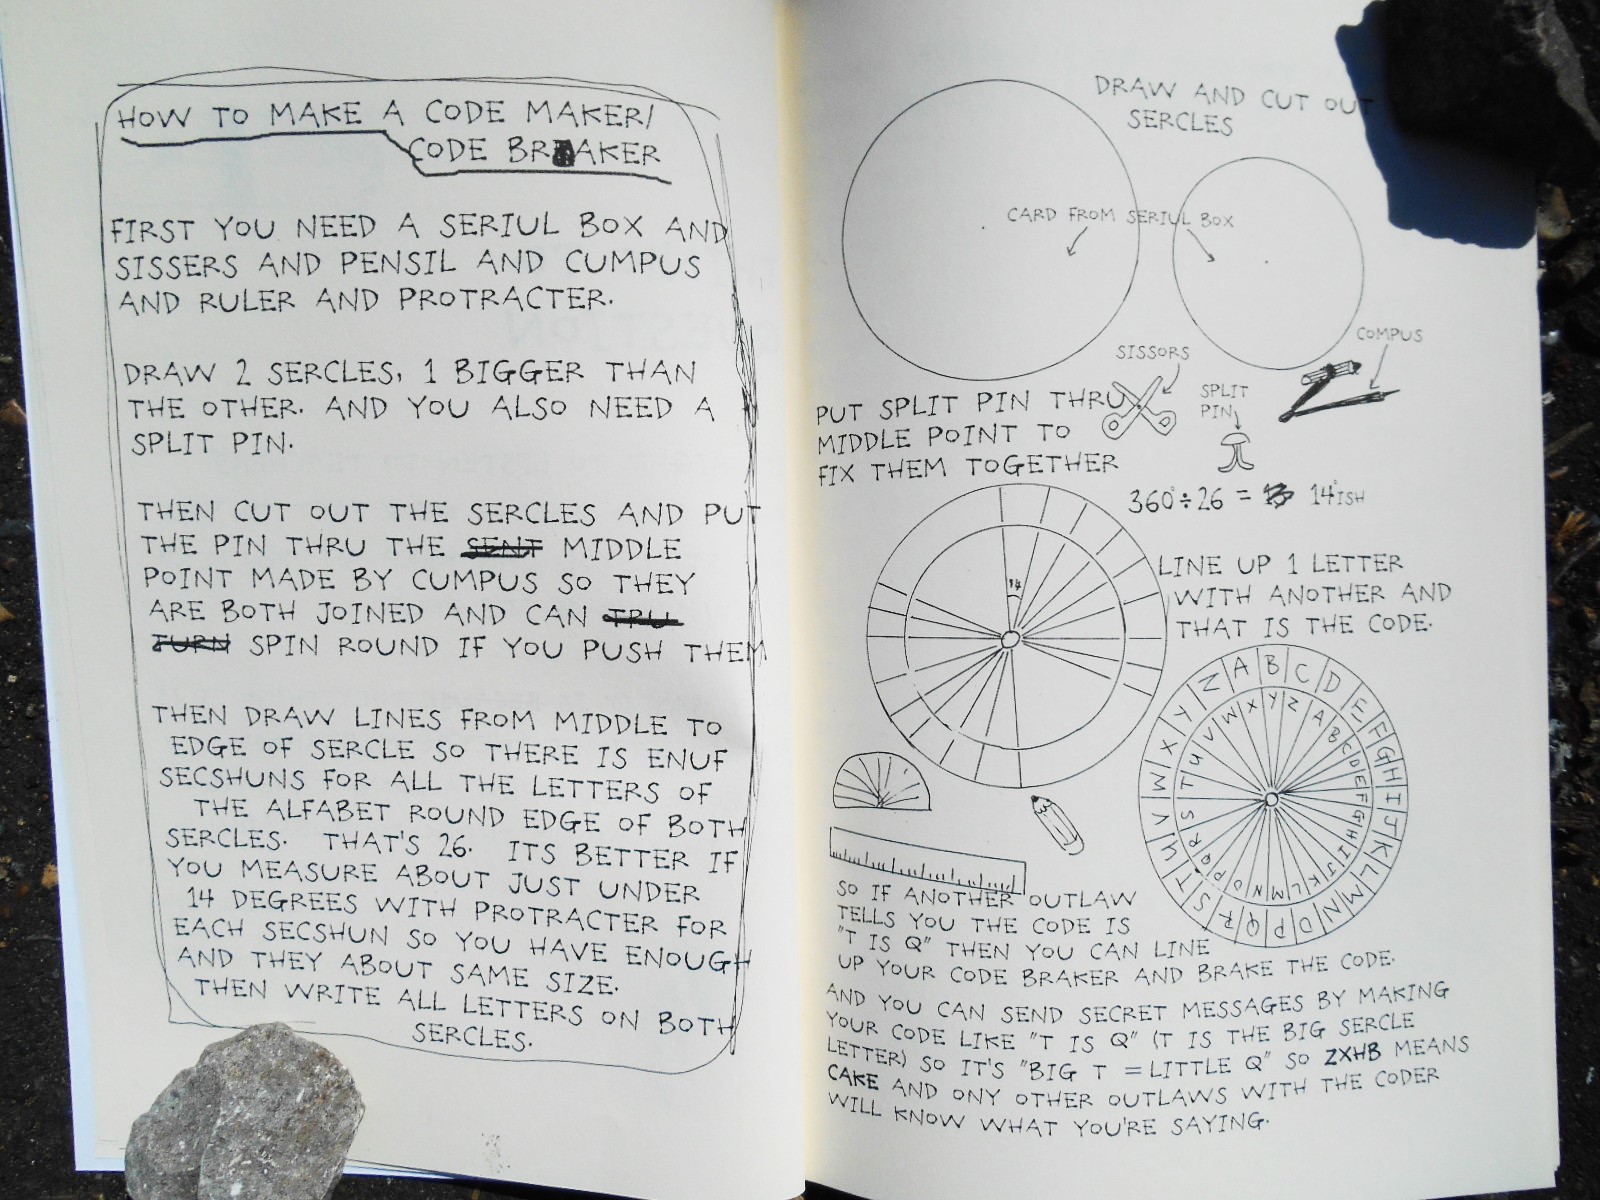 HOW TO MAKE A CODE MAKER/
CODE BRAKER
FIRST YOU NEED A SERIUL BOX AND
SISSERS AND PENSIL AND CUMPUS
AND RULER AND PROTRACTER.
DRAW 2 SERCLES, 1 BIGGER THAN
THE OTHER. AND YOU ALSO NEED A
SPLIT PIN.
THEN CUT OUT THE SERCLES AND PUT
THE PIN THRU THE SENT MIDDLE
POINT MADE BY CUMPUS SO THEY
ARE BOTH JOINED AND CAN TRU
TURN SPIN ROUND IF YOU PUSH THEM
THEN DRAW LINES FROM MIDDLE TO
EDGE OF SERCLE SO THERE IS ENUF
SECSHUNS FOR ALL THE LETTERS OF
THE ALFABET ROUND EDGE OF BOTH
SERCLES. THAT'S 26. ITS BETTER IF
YOU MEASURE ABOUT JUST UNDER
14 DEGREES WITH PROTRACTER FOR
EACH SECSHUN SO YOU HAVE ENOUGH
AND THEY ABOUT SAME SIZE.
THEN WRITE ALL LETTERS ON BOTH
SERCLES.
DRAW AND CUT OUT
SERCLES
CARD FROM SERIUL BOX
COMPUS
SISSORS
SPLIT
PIN
PUT SPLIT PIN THRU
MIDDLE POINT TO
FIX THEM TOGETHER
360°÷26 = 13 14°ISH
14
LINE UP 1 LETTER
WITH ANOTHER AND
THAT IS THE CODE.
A B C D E F G H I J K L M N O P Q R S T U V W X Y Z
A B C D E F G H I J K L M N O P Q R S T U V W X Y Z
SO IF ANOTHER OUTLAW
TELLS YOU THE CODE IS
"T IS Q" THEN YOU CAN LINE
UP YOUR CODE BRAKER AND BRAKE THE CODE.
AND YOU CAN SEND SECRET MESSAGES BY MAKING
YOUR CODE LIKE "T IS Q" (T IS THE BIG SERCLE
LETTER) SO IT'S "BIG T = LITTLE Q" SO ZXHB MEANS
CAKE AND ONY OTHER OUTLAWS WITH THE CODER
WILL KNOW WHAT YOU'RE SAYING.